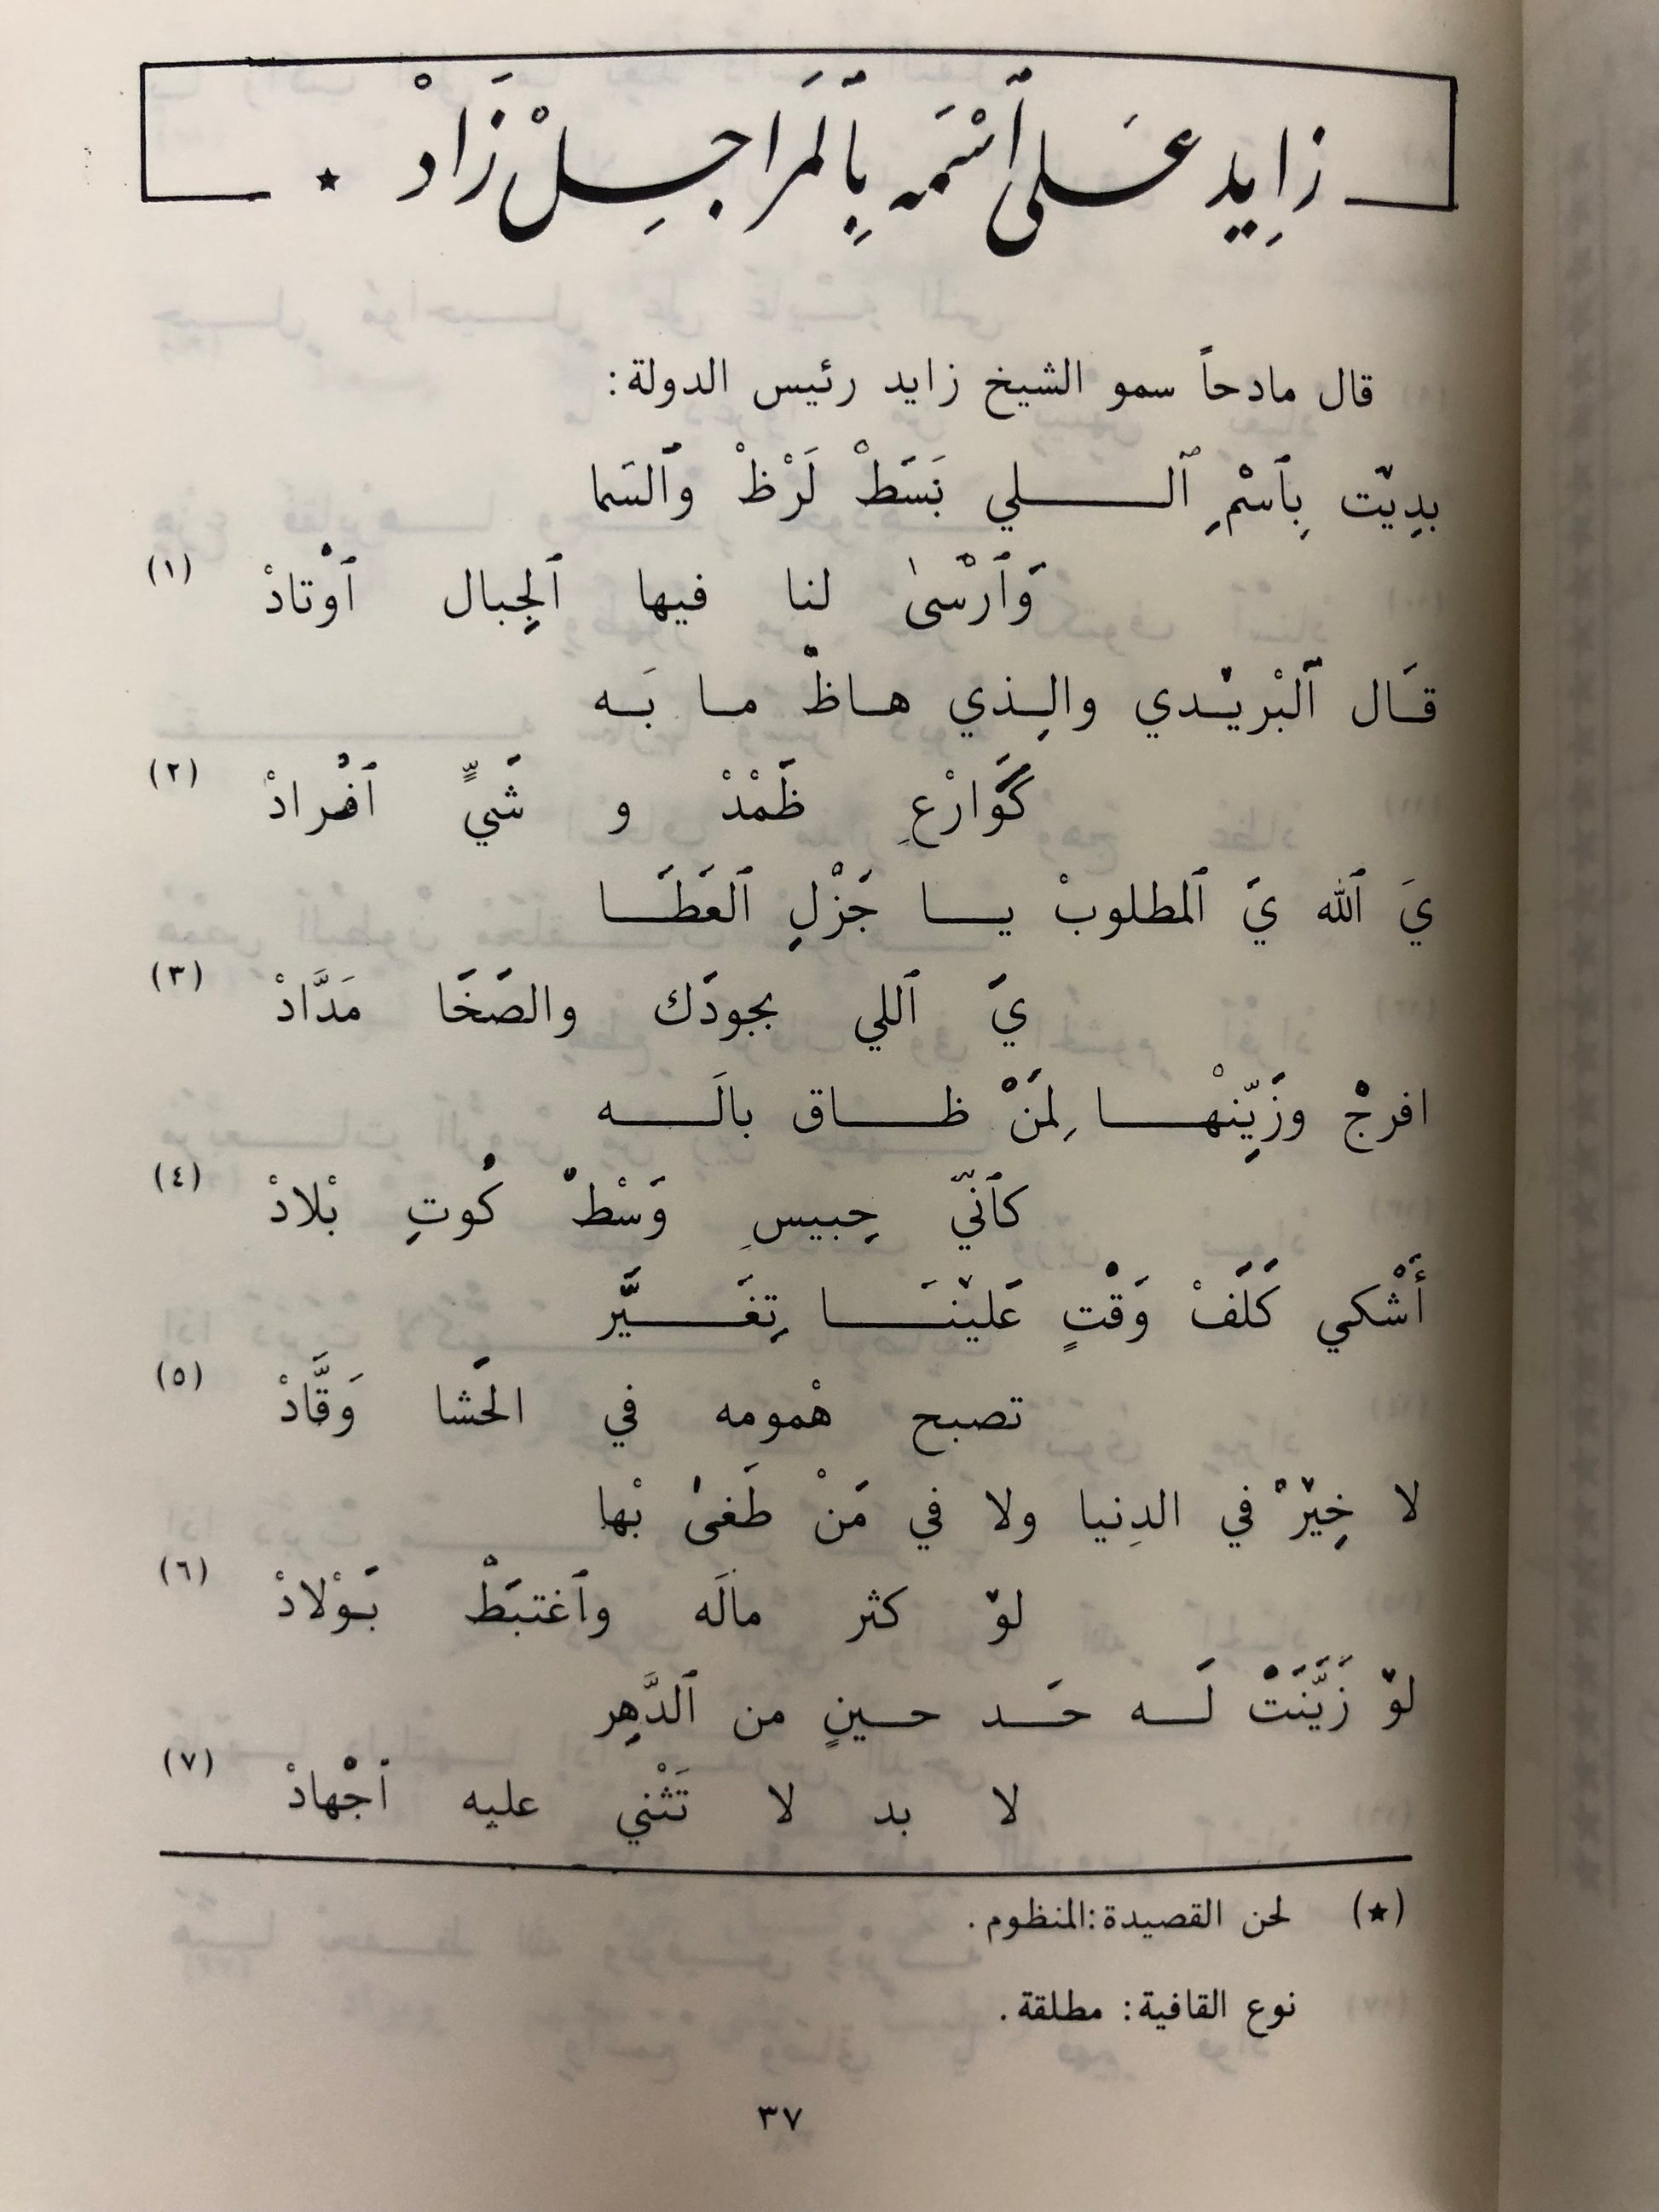 زَايِد عَلى ٱسْمَه بِٱلمَراجِلْ زَادْ ★
قال مادحاً سمو الشيخ زايد رئيس الدولة:
بدِيّت بِٱسْمِ ٱللي بَسَطْ لَرْظْ وَٱلسَما
وَٱرْسىٰ لنا فيها ٱلجِبال ٱوْتادْ (١)
قَال ٱلبْريْدي والِذي هاظْ ما بَه
كَوَارْعِ ظَمْدْ و شَيٍّ ٱفْرادْ (٢)
يَ ٱلله يَ ٱلمطلوبْ يا جَزْلِ ٱلعَطَا
يَ ٱللي بجودَك والصَخَا مَدَّادْ (٣)
افرجْ وزَيِّنْها لِمَنْ ظاق بالَه
كأنّي حِبيسِ وَسْطْ كُوتِ بْلادْ (٤)
أَشْكي كَلَفْ وَقْتٍ عَليْنَا تِغَيَّر
تصبح هْمومه في الحَشا وَقَّادْ (٥)
لا خِيْرْ في الدِنيا ولا في مَنْ طَغىْ بْها
لوْ كثر مالَه وٱغتبَطْ بَوْلادْ (٦)
لوْ زَيَّنَتْ لَه حَد حينٍ من ٱلدَّهِر
لا بد لا تَثْني عليه ٱجْهادْ (٧)
(★) لحن القصيدة:المنظوم.
نوع القافية: مطلقة.
٣٧